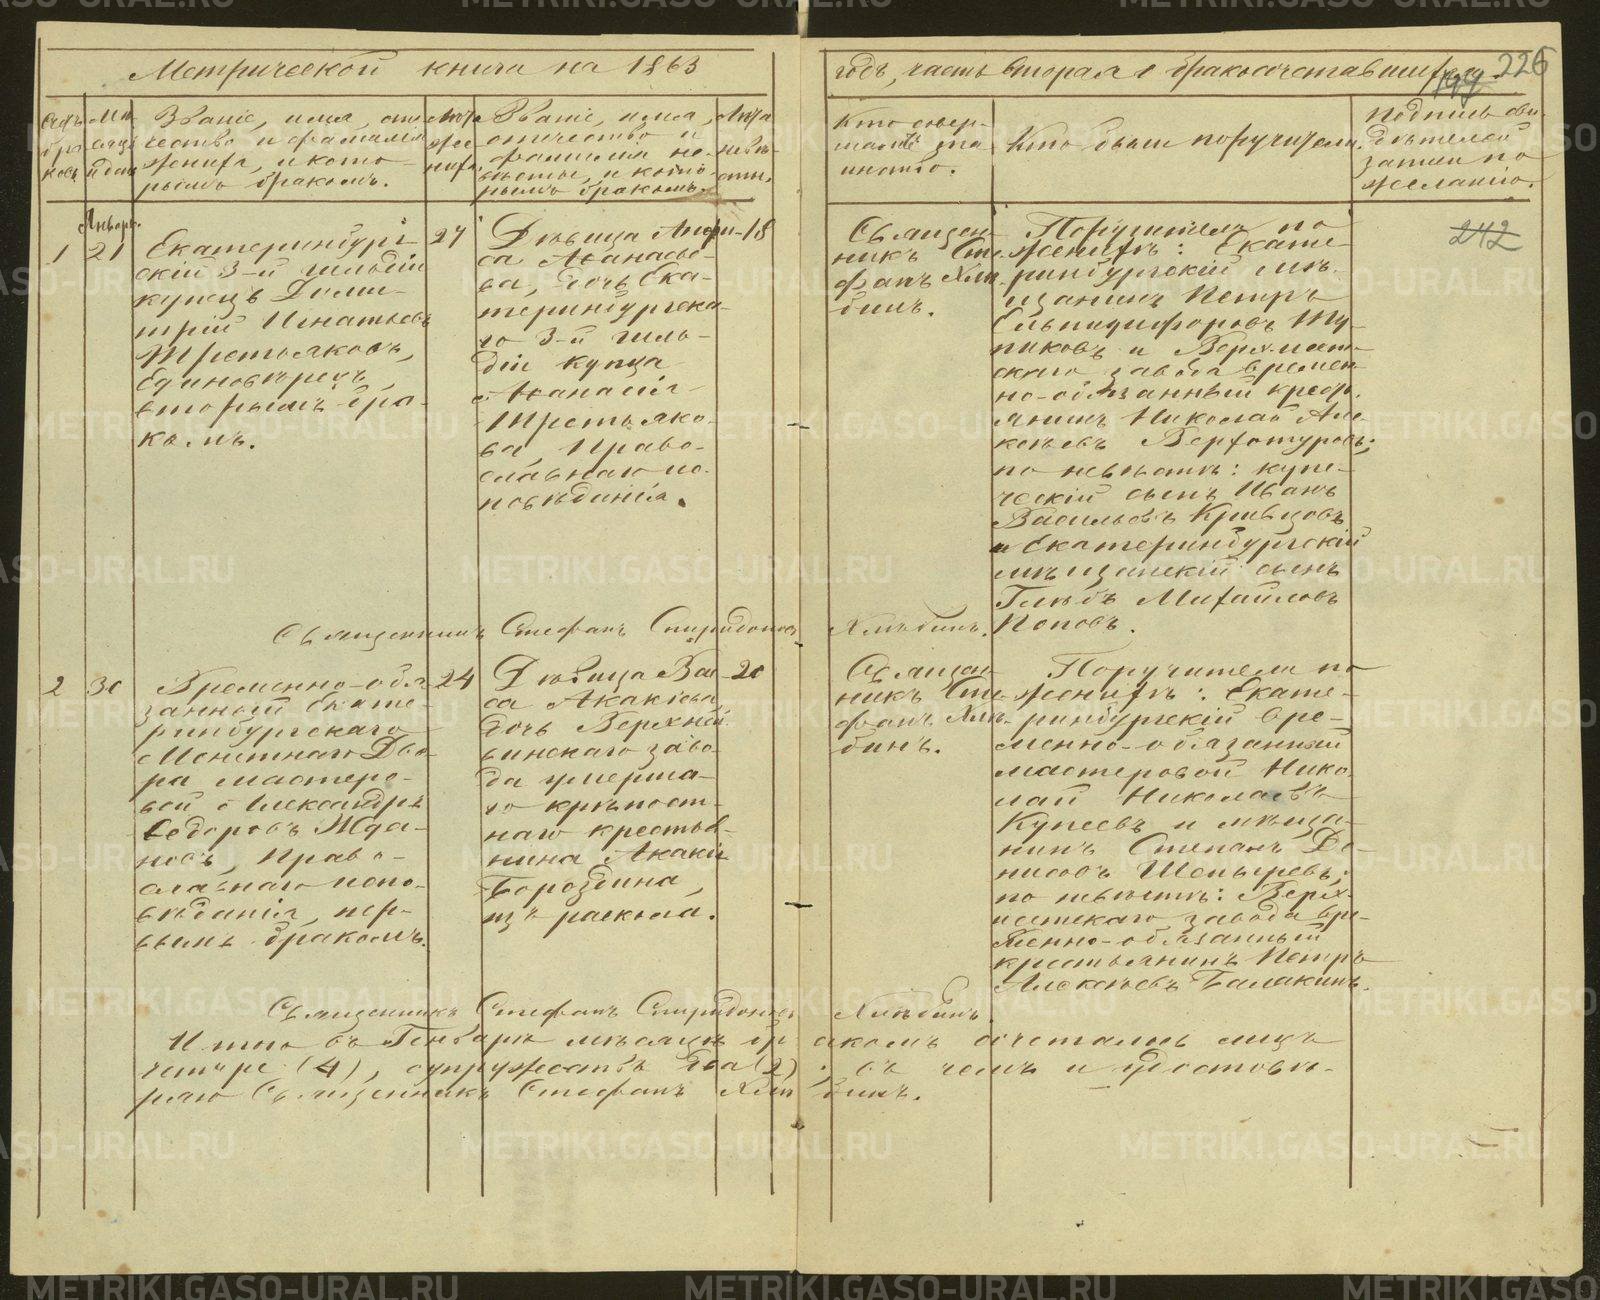 Метрической книги на 1863
годъ, часть вторая о бракосочетавшихся.
226
199
Счетъ браковъ
Мѣсяцъ и день
Званіе, имя, оте
чество и фамилія
жениха, и кото
рымъ бракомъ.
Лѣта
же
ниха
Званіе, имя,
отчество и
фамилія не
вѣсты, и кото
рымъ бракомъ.
Лѣта
невѣ
сты.
Кто совер
шалъ та
инство.
Кто были поручители.
Подпись сви
дѣтелей
записи по
желанію.
Январь.
1
21
Екатеринбург
скій 3-й гильдіи
купецъ Дими
трій Игнатьевъ
Третьяковъ,
Единовѣрецъ,
вторымъ бра-
комъ.
27
Дѣвица Анфи-
са Аѳанасье-
ва, дочь Ека-
теринбургска-
го 3-й гиль-
діи купца
Аѳанасія
Третьяко-
ва, Право-
славнаго ис-
повѣданія.
18
Священ-
никъ Сте-
фанъ Хлѣ-
бинъ.
Поручители по
женихѣ: Екате-
ринбургскій мѣ-
щанинъ Петръ
Елпидифоровъ Ту-
пиковъ и Верх-исет-
скаго завода времен-
но-обязанный кресть-
янинъ Николай Але-
ксѣевъ Верхотуровъ;
по невѣстѣ: купе-
ческій сынъ Иванъ
Васильевъ Кривцовъ
и Екатеринбургскій
мѣщанскій сынъ
Глѣбъ Михайловъ
Поповъ.
242
Священникъ Стефанъ Спиридоновъ Хлѣбинъ.
2
30
Временно-обя
занный Екате-
ринбургскаго
Монетнаго Дво-
ра мастеро-
вой Александръ
Ѳедоровъ Жда-
новъ, Право-
славнаго испо-
вѣданія, пер-
вымъ бракомъ.
24
Дѣвица Ваc
са Акакіева,
дочь Верхней-
винскаго заво-
да умерша-
го крѣпост-
наго крестья-
нина Акакія
Бороздина,
изъ раскола.
20
Священ-
никъ Сте-
фанъ Хлѣ-
бинъ.
Поручители по
женихѣ: Екате-
ринбургскій вре-
менно-обязанный
мастеровой Нико-
лай Николаевъ
Купеевъ и мѣща-
нинъ Степанъ Де-
нисовъ Шепыревъ;
по невѣстѣ: Верх-
исетскаго завода вре-
менно-обязанный
крестьянинъ Петръ
Алексѣевъ Балакинъ.
Священникъ Стефанъ Спиридоновъ Хлѣбинъ.
Итого въ Генварѣ мѣсяцѣ бракомъ сочеталось лицъ
четыре (4), супружествъ два (2), въ чемъ и удостовѣ-
ряю Священникъ Стефанъ Хлѣбинъ.
METRIKI.GASO-URAL.RU